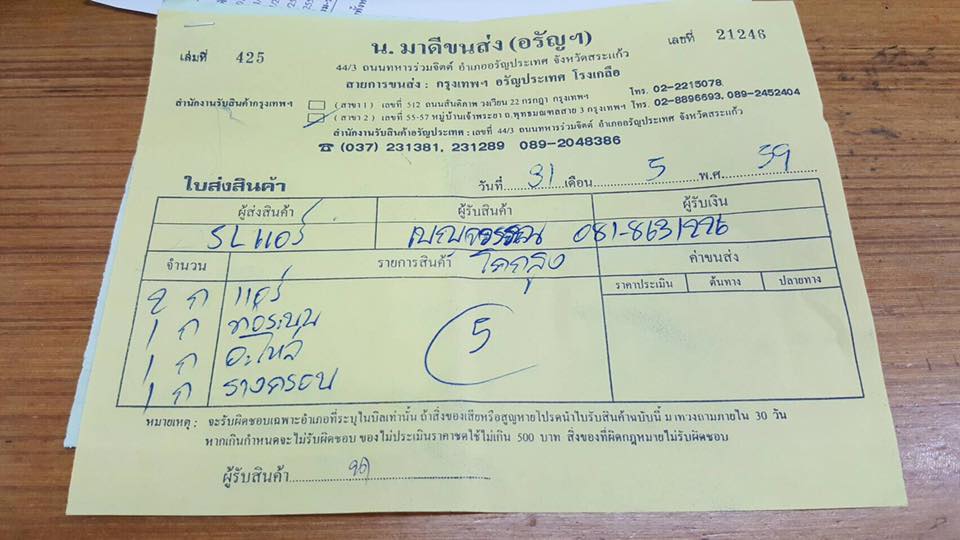 เล่มที่ 425
น. มาดีขนส่ง (อรัญฯ)
เลขที่ 21246
44/3 ถนนทหารร่วมจิตต์ อำเภออรัญประเทศ จังหวัดสระแก้ว
สายการขนส่ง : กรุงเทพฯ อรัญประเทศ โรงเกลือ
สำนักงานรับสินค้ากรุงเทพฯ (สาขา 1) เลขที่ 512 ถนนสันติภาพ วงเวียน 22 กรกฎา กรุงเทพฯ โทร. 02-2215078
(สาขา 2) เลขที่ 55-57 หมู่บ้านเจ้าพระยา ถ.พุทธมณฑลสาย 3 กรุงเทพฯ โทร. 02-8896693, 089-2452404
สำนักงานรับสินค้าอรัญประเทศ : เลขที่ 44/3 ถนนทหารร่วมจิตต์ อำเภออรัญประเทศ จังหวัดสระแก้ว
☎ (037) 231381, 231289 089-2048386
ใบส่งสินค้า
วันที่ 31 เดือน 5 พ.ศ. 59
ผู้ส่งสินค้า ผู้รับสินค้า ผู้รับเงิน
SL แอร์ เบญจวรรณ 081-8631226
จำนวน รายการสินค้า โคกสูง ค่าขนส่ง
ราคาประเมิน ต้นทาง ปลายทาง
2 ก แอร์
1 ก ท่อระบบ
5
1 ก อะไหล่
1 ก รางครอบ
หมายเหตุ : จะรับผิดชอบเฉพาะอำเภอที่ระบุในบิลเท่านั้น ถ้าสิ่งของเสียหรือสูญหายโปรดนำใบรับสินค้าฉบับนี้ มาทวงถามภายใน 30 วัน
หากเกินกำหนดจะไม่รับผิดชอบ ของไม่ประเมินราคาชดใช้ไม่เกิน 500 บาท สิ่งของที่ผิดกฎหมายไม่รับผิดชอบ
ผู้รับสินค้า